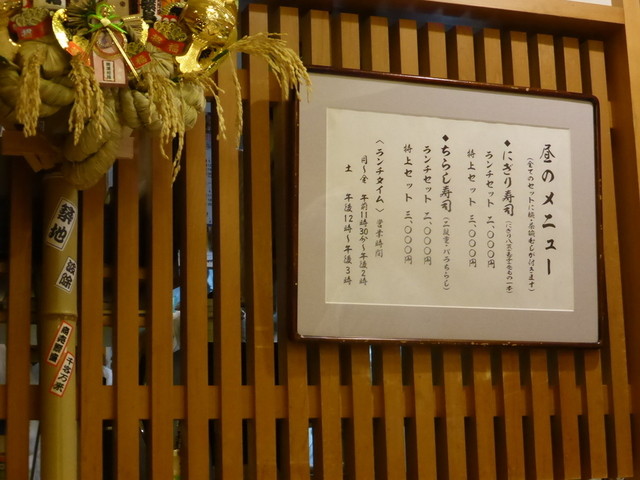 昼のメニュー
(全てのセットに椀・茶碗むしが付きます)
◆にぎり寿司
ランチセット 二、〇〇〇円
特上セット 三、〇〇〇円
◆ちらし寿司(二段重・バラちらし)
ランチセット 二、〇〇〇円
特上セット 三、〇〇〇円
〈ランチタイム〉営業時間
月〜金 午前11時30分〜午後2時
土 午後12時〜午後3時
築地
商売繁盛
千客万来